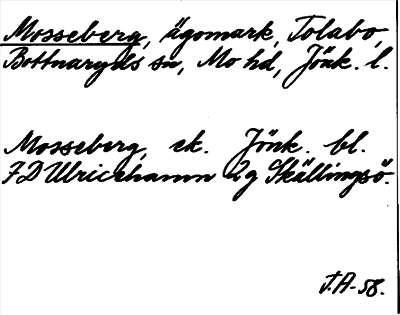 Mosseberg, ägomark, Tolabo,
Bottnaryds sn, Mo hd, Jönk. l.
Mosseberg, ek. Jönk. bl.
7D Ulricehamn 2g Skällingsö.
J.A-58.